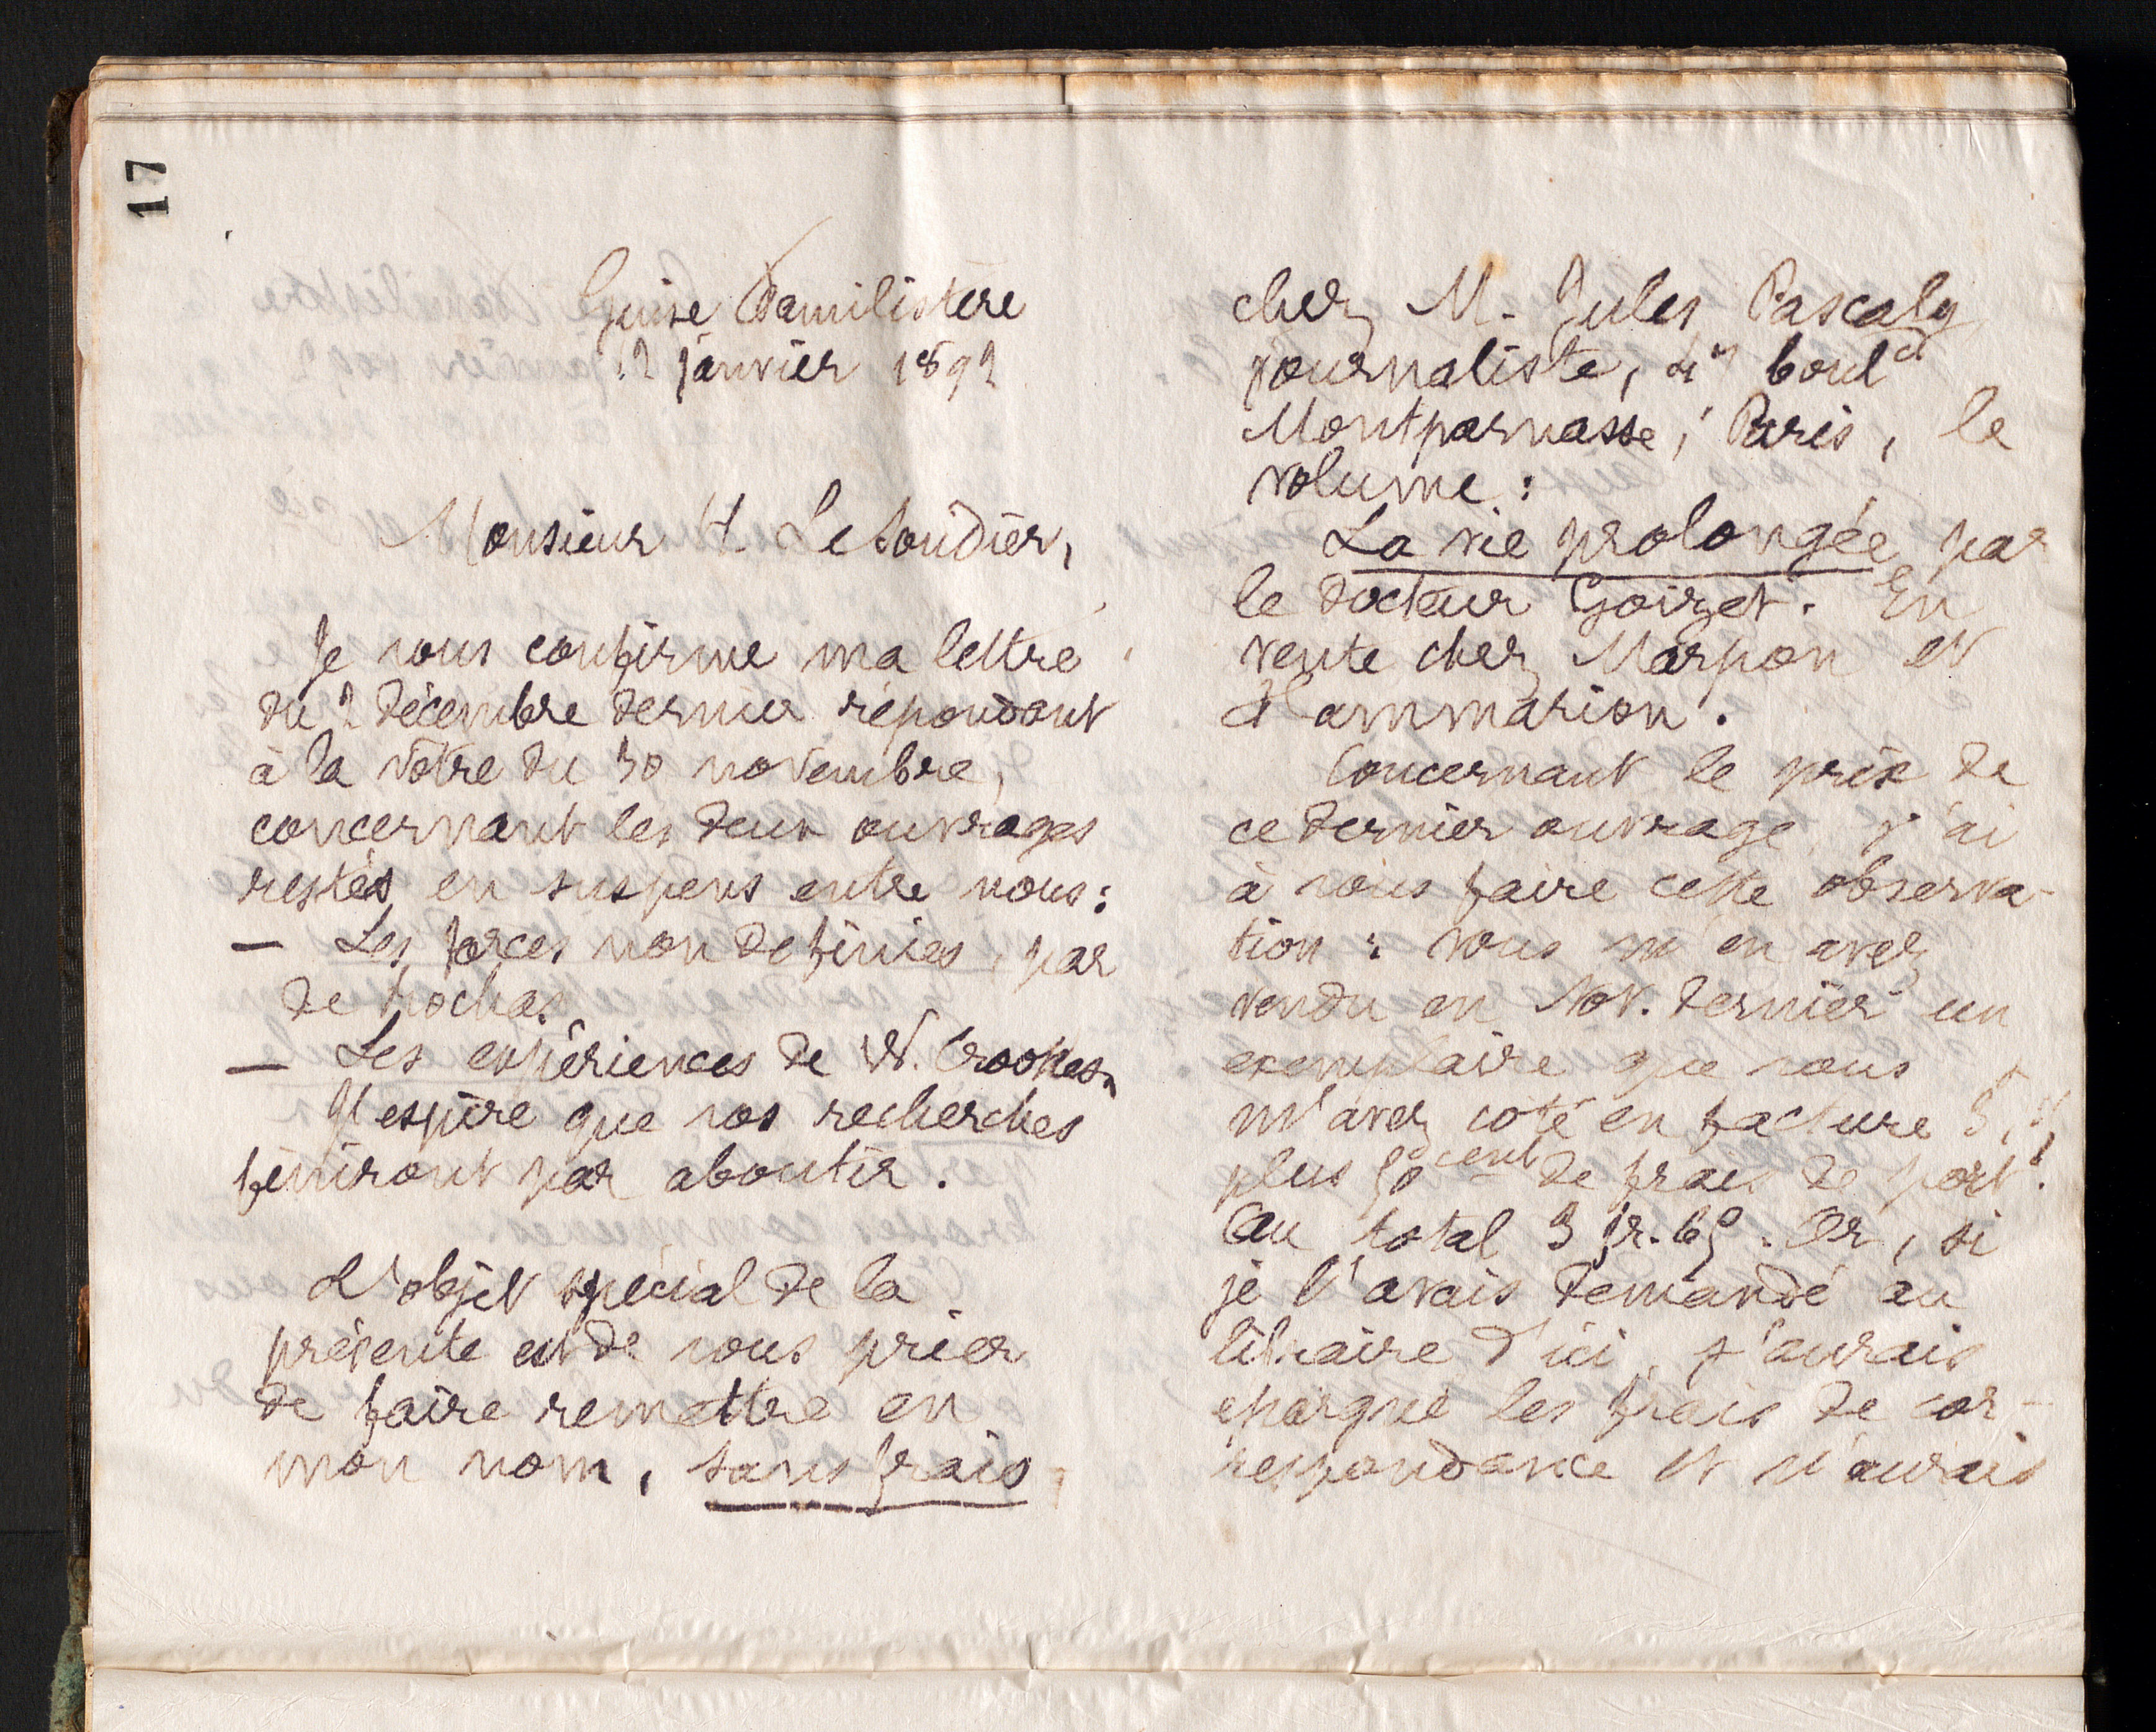 17
Guise Familistère
2 janvier 1892
Monsieur H Le Soudier,
Je vous confirme ma lettre
du 2 décembre dernier répondant
à la vôtre du 30 novembre,
concernant les deux ouvrages
restés en suspens entre nous :
— Les forces non définies, par
de Rochas.
— Les expériences de W. Crookes.
J'espère que vos recherches
finiront par aboutir.
L'objet spécial de la
présente est de vous prier
de faire remettre en
mon nom, sans frais,
chez M. Jules Pascaly
journaliste, boul^d
Montparnasse, Paris, le
volume :
La vie prolongée par
le docteur Goizet. En
vente chez Marpon et
Flammarion.
Concernant le prix de
ce dernier ouvrage, j'ai
à vous faire cette observa-
tion : vous m'en avez
vendu en Nov. dernier un
exemplaire que vous
m'avez coté en facture
plus 50 cent de frais de port.
Au total 3 fr. 65. Or, si
je l'avais demandé au
libraire d'ici, j'aurais
épargné les frais de cor-
respondance et n'aurais